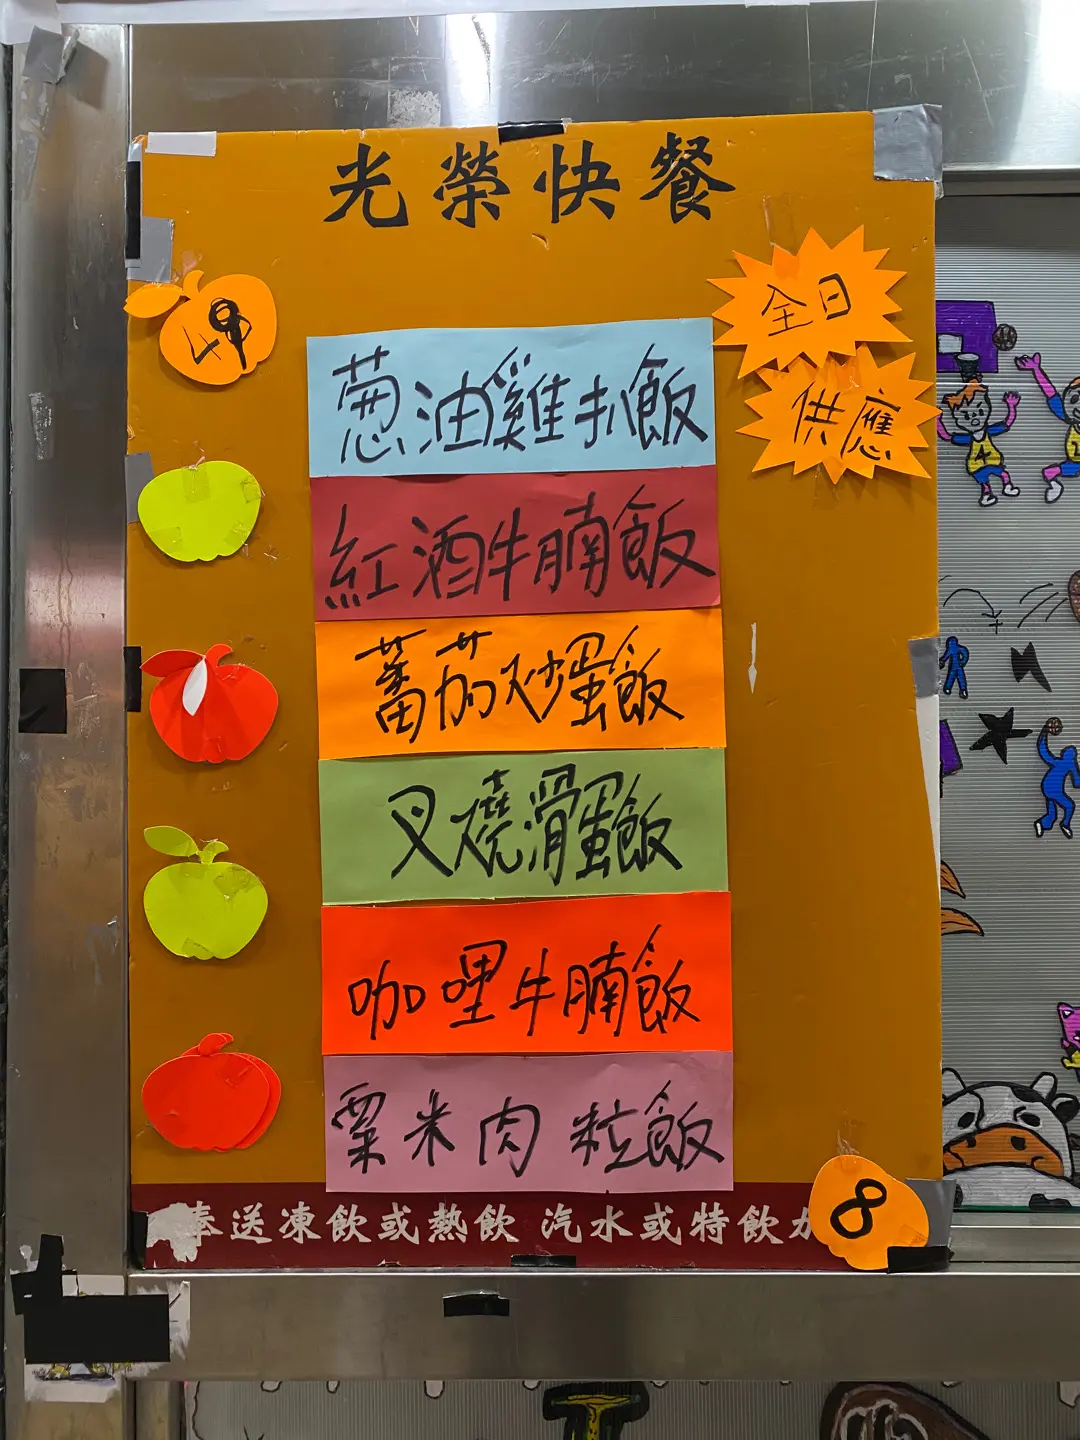 光榮快餐
全日
供應
49
葱油雞扒飯
紅酒牛腩飯
蕃茄炒蛋飯
叉燒滑蛋飯
咖哩牛腩飯
粟米肉粒飯
奉送凍飲或熱飲 汽水或特飲加
8
4